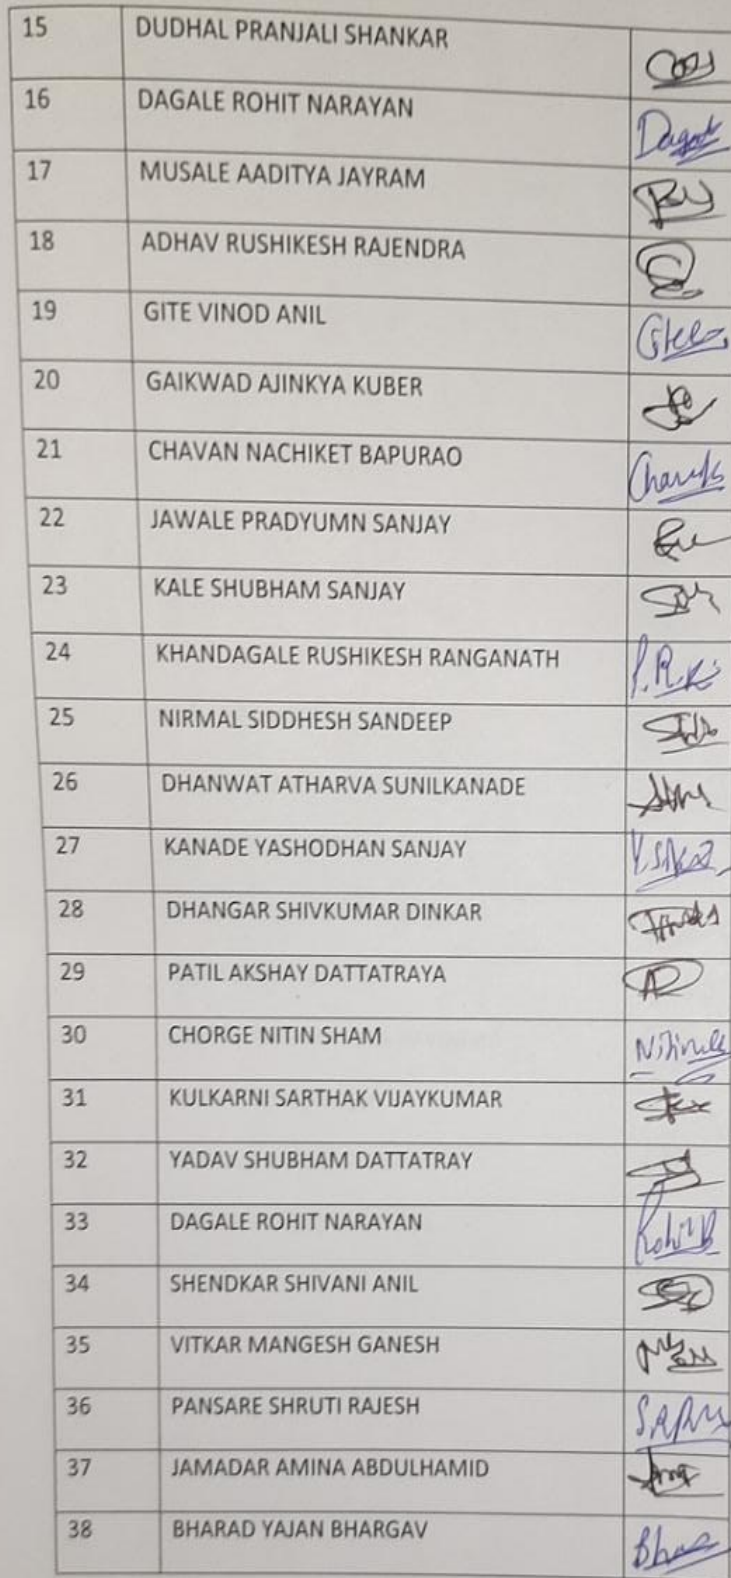 15 DUDHAL PRANJALI SHANKAR
16 DAGALE ROHIT NARAYAN
17 MUSALE AADITYA JAYRAM
18 ADHAV RUSHIKESH RAJENDRA
19 GITE VINOD ANIL
20 GAIKWAD AJINKYA KUBER
21 CHAVAN NACHIKET BAPURAO
22 JAWALE PRADYUMN SANJAY
23 KALE SHUBHAM SANJAY
24 KHANDAGALE RUSHIKESH RANGANATH
25 NIRMAL SIDDHESH SANDEEP
26 DHANWAT ATHARVA SUNILKANADE
27 KANADE YASHODHAN SANJAY
28 DHANGAR SHIVKUMAR DINKAR
29 PATIL AKSHAY DATTATRAYA
30 CHORGE NITIN SHAM
31 KULKARNI SARTHAK VIJAYKUMAR
32 YADAV SHUBHAM DATTATRAY
33 DAGALE ROHIT NARAYAN
34 SHENDKAR SHIVANI ANIL
35 VITKAR MANGESH GANESH
36 PANSARE SHRUTI RAJESH
37 JAMADAR AMINA ABDULHAMID
38 BHARAD YAJAN BHARGAV